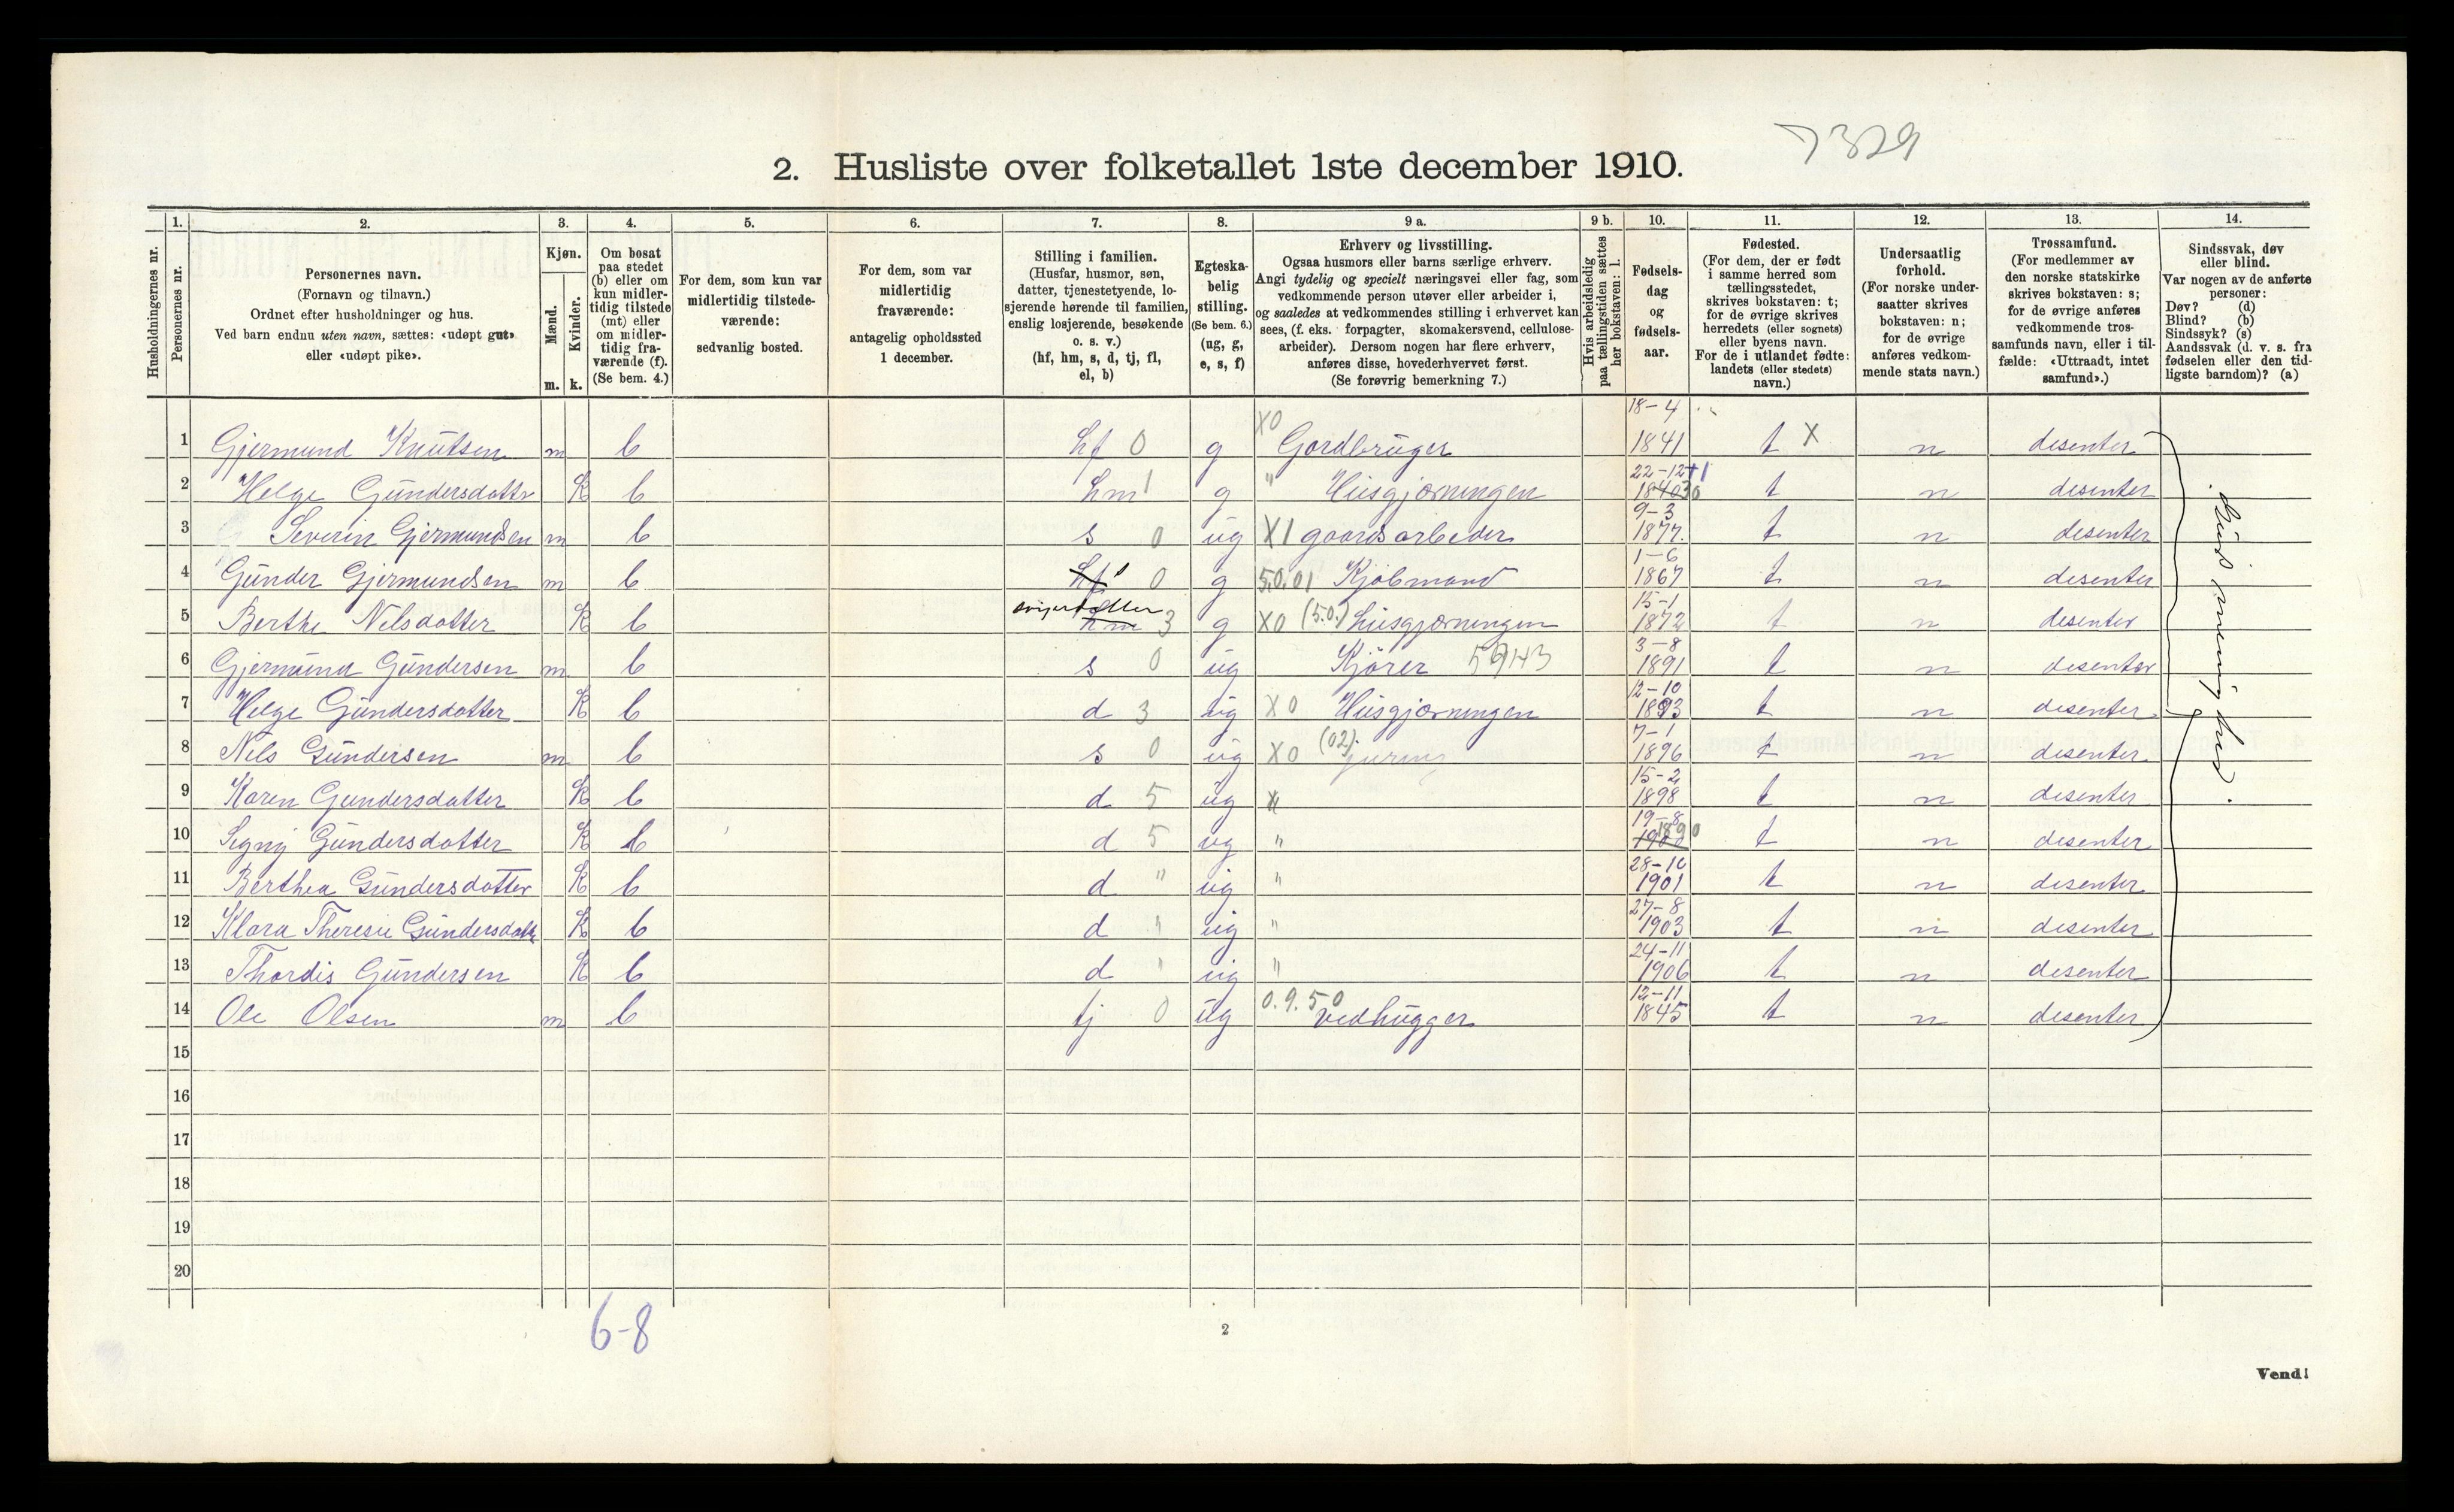 7329
2. Husliste over folketallet 1ste december 1910.
Husholdningernes nr.
1. Personernes nr.
2. Personernes navn.
(Fornavn og tilnavn.)
Ordnet efter husholdninger og hus.
Ved barn endnu uten navn, sættes: «udøpt gut»
eller «udøpt pike».
3. Kjøn.
Mænd. m.
Kvinder. k.
4. Om bosat
paa stedet
(b) eller om
kun midler-
tidig tilstede
(mt) eller
om midler-
tidig fra-
værende (f).
(Se bem. 4.)
5. For dem, som kun var
midlertidig tilstede-
værende:
sedvanlig bosted.
6. For dem, som var
midlertidig
fraværende:
antagelig opholdssted
1 december.
7. Stilling i familien.
(Husfar, husmor, søn,
datter, tjenestetyende, lo-
sjerende hørende til familien,
enslig losjerende, besøkende
o. s. v.)
(hf, hm, s, d, tj, fl,
el, b)
8. Egteska-
belig
stilling.
(Se bem. 6.)
(ug, g,
e, s, f)
9 a. Erhverv og livsstilling.
Ogsaa husmors eller barns særlige erhverv.
Angi tydelig og specielt næringsvei eller fag, som
vedkommende person utøver eller arbeider i,
og saaledes at vedkommendes stilling i erhvervet kan
sees, (f. eks. forpagter, skomakersvend, cellulose-
arbeider). Dersom nogen har flere erhverv,
anføres disse, hovederhvervet først.
(Se forøvrig bemerkning 7.)
9 b. Hvis arbeidsledig
paa tællingstiden sættes
her bokstaven: l.
10. Fødsels-
dag
og
fødsels-
aar.
11. Fødested.
(For dem, der er født
i samme herred som
tællingsstedet,
skrives bokstaven: t;
for de øvrige skrives
herredets (eller sognets)
eller byens navn.
For de i utlandet fødte:
landets (eller stedets)
navn.)
12. Undersaatlig
forhold.
(For norske under-
saatter skrives
bokstaven: n;
for de øvrige
anføres vedkom-
mende stats navn.)
13. Trossamfund.
(For medlemmer av
den norske statskirke
skrives bokstaven: s;
for de øvrige anføres
vedkommende tros-
samfunds navn, eller i til-
fælde: «Uttraadt, intet
samfund».)
14. Sindssvak, døv
eller blind.
Var nogen av de anførte
personer:
Døv? (d)
Blind? (b)
Sindssyk? (s)
Aandssvak (d. v. s. fra
fødselen eller den tid-
ligste barndom)? (a)
1 Gjermund Knutsen m b hf 0 g X0 Gordbruger 18-4 1841 t X n desenter
2 Helge Gundersdottr K b hm 1 g " Husgjorningen 22-12 +1 1840 30 t n desenter
3 Severin Gjermundsen m b s 0 ug X1 goordsarbeder 9-3 1877. t n desenter
4 Gunder Gjermundsen m b hf s 0 g 5.0.01 Kjøbmand 1-6 1867 t n desenter
5 Berthe Nilsdotter K b hm svigerdotter 3 g X0 (50.) husgjorningen 15-1 1872 t n desenter
6 Gjermund Gundersen m b s 0 ug Kjörer 3-8 1891 t n desenter
7 Helge Gundersdotter K b d 3 ug X0 Husgjorningen 12-10 1893 t n desenter
8 Nils Gundersen m b s 0 ug X0 (02) 7-1 1896 t n desenter
9 Karen Gundersdatter K b d 5 ug " 15-2 1898 t n desenter
10 Signy Gundersdotter K b d 5 ug " 19-8 t n desenter
11 Berthea Gundersdotter K b d " ug " 28-10 1901 t n desenter
12 Klara Theresie Gundersdott K b d " ug " 27-8 1903 t n desenter
13 Thordis Gundersen K b d " ug " 24-11 1906 t n desenter
14 Ole Olsen m b tj 0 ug 0.9.50 vedhugger 12-11 1845 t n desenter
15
16
17
18
19
20
6-8
2
Vend!